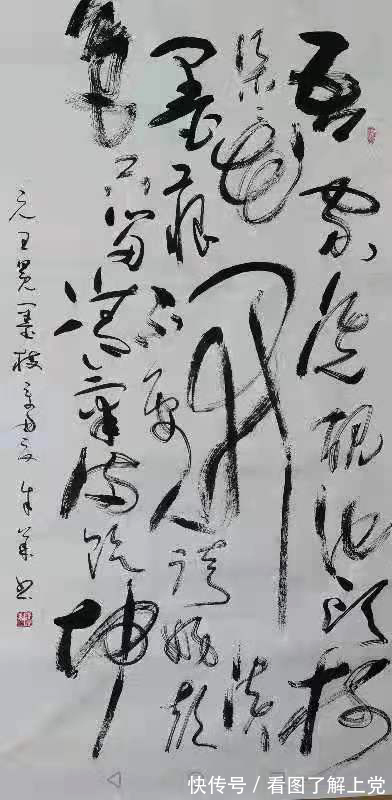 吾家洗砚池头树
个个花開淡
墨痕不要人誇好顔
色只留清氣满乾坤
元王冕墨梅
快传号／看图了解上党